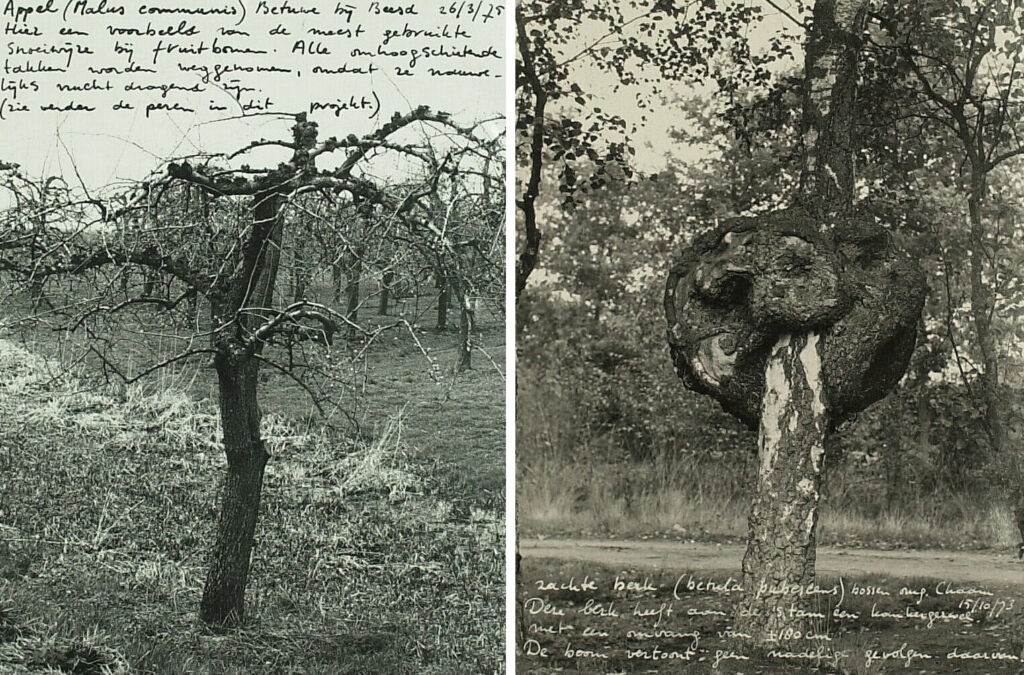 Appel (Malus communis) Betuwe bij Beesd 26/3/75
Hier een voorbeeld van de meest gebruikte
snoeiwijze bij fruitbomen. Alle omhoogschietende
takken worden weggenomen, omdat ze nauwe-
lijks vrucht dragend zijn.
(zie verder de peren in dit projekt.)
zachte berk (betula pubescens) bossen omg. Chaam
15/10/73
Deze berk heeft aan de stam een kankergezwel
met een omvang van ±180 cm
De boom vertoont geen nadelige gevolgen daarvan